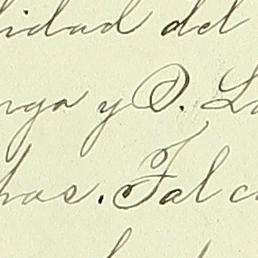 idad del
nga y D. L
has. Tal c